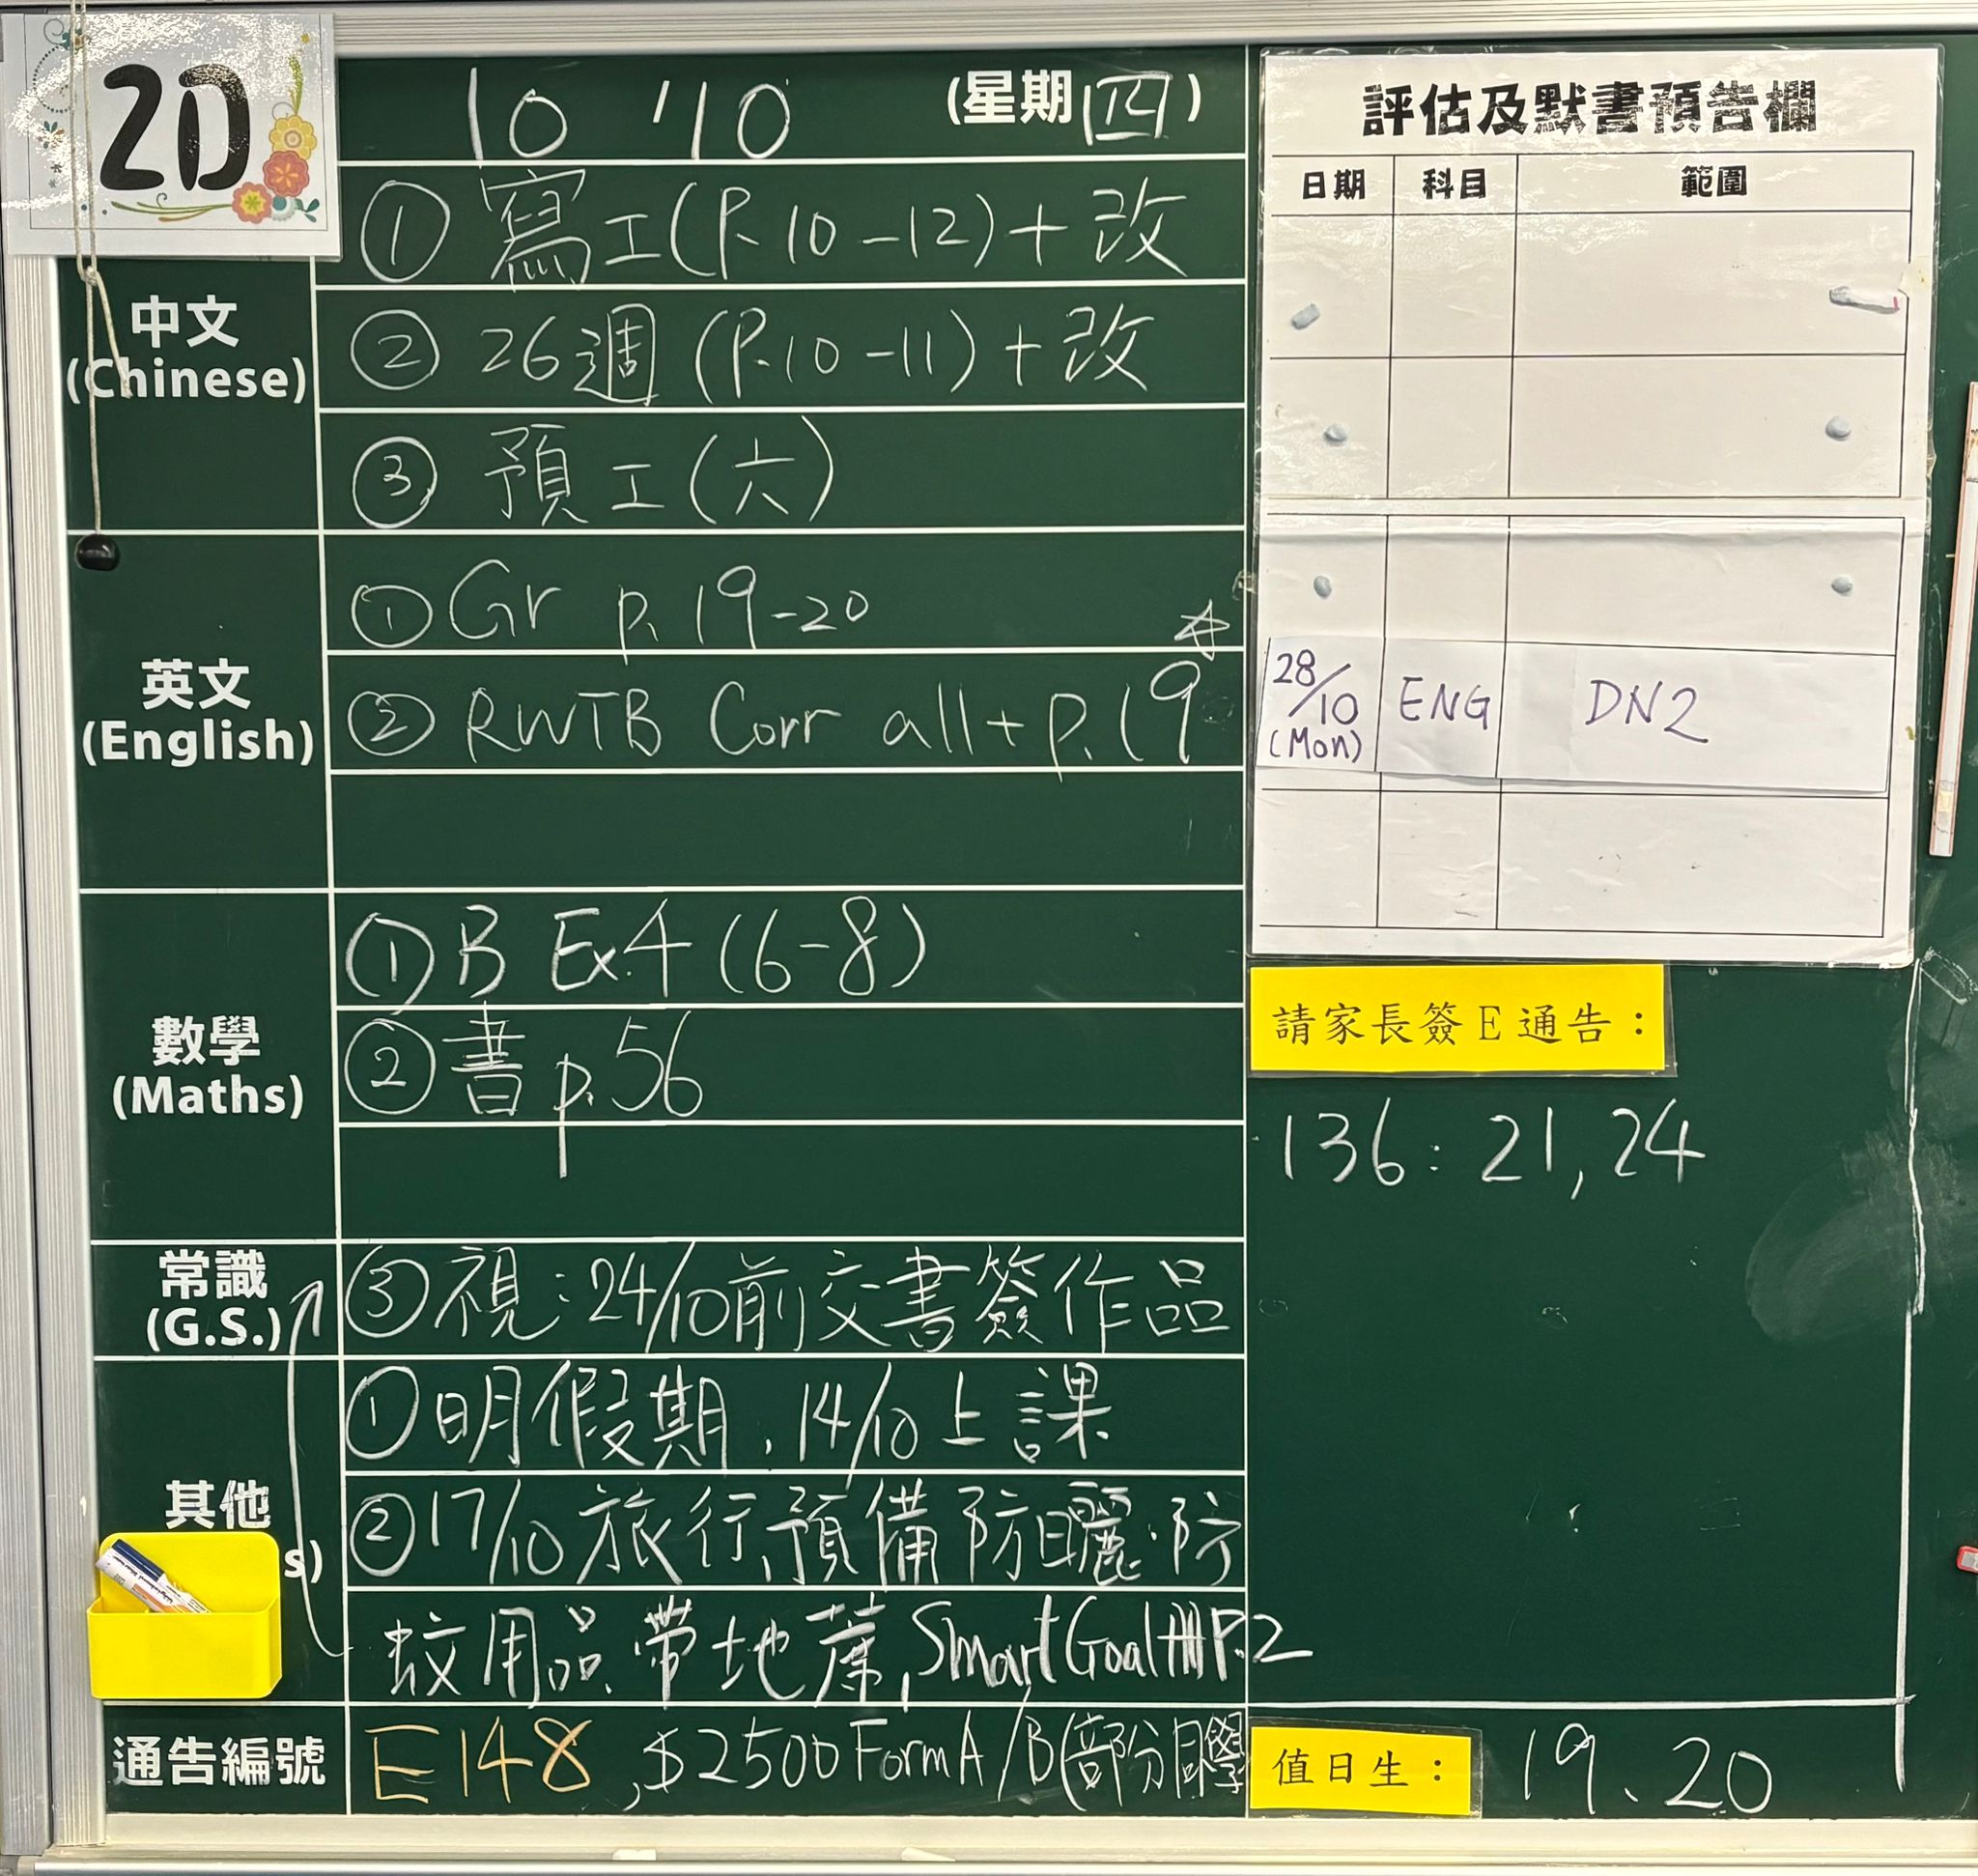 2D
10 '10 (星期四)
中文
(Chinese)
① 寫工(P.10-12)+改
② 26週(P.10-11)+改
③ 預工(六)
英文
(English)
① Gr p.19-20
② RWTB Corr all+p.19
數學
(Maths)
① B Ex.4 (6-8)
② 書 p.56
常識
(G.S.)
③ 視:24/10前交書簽作品
其他
s)
① 明假期,14/10上課
② 17/10旅行,預備防曬.防
蚊用品、帶地蓆,Smart Goal P.2
通告編號
E148,$2500 Form A/B(部分同學
評估及默書預告欄
日期 科目 範圍
28/10 (Mon) ENG DN2
請家長簽E通告:
136:21,24
值日生: 19、20